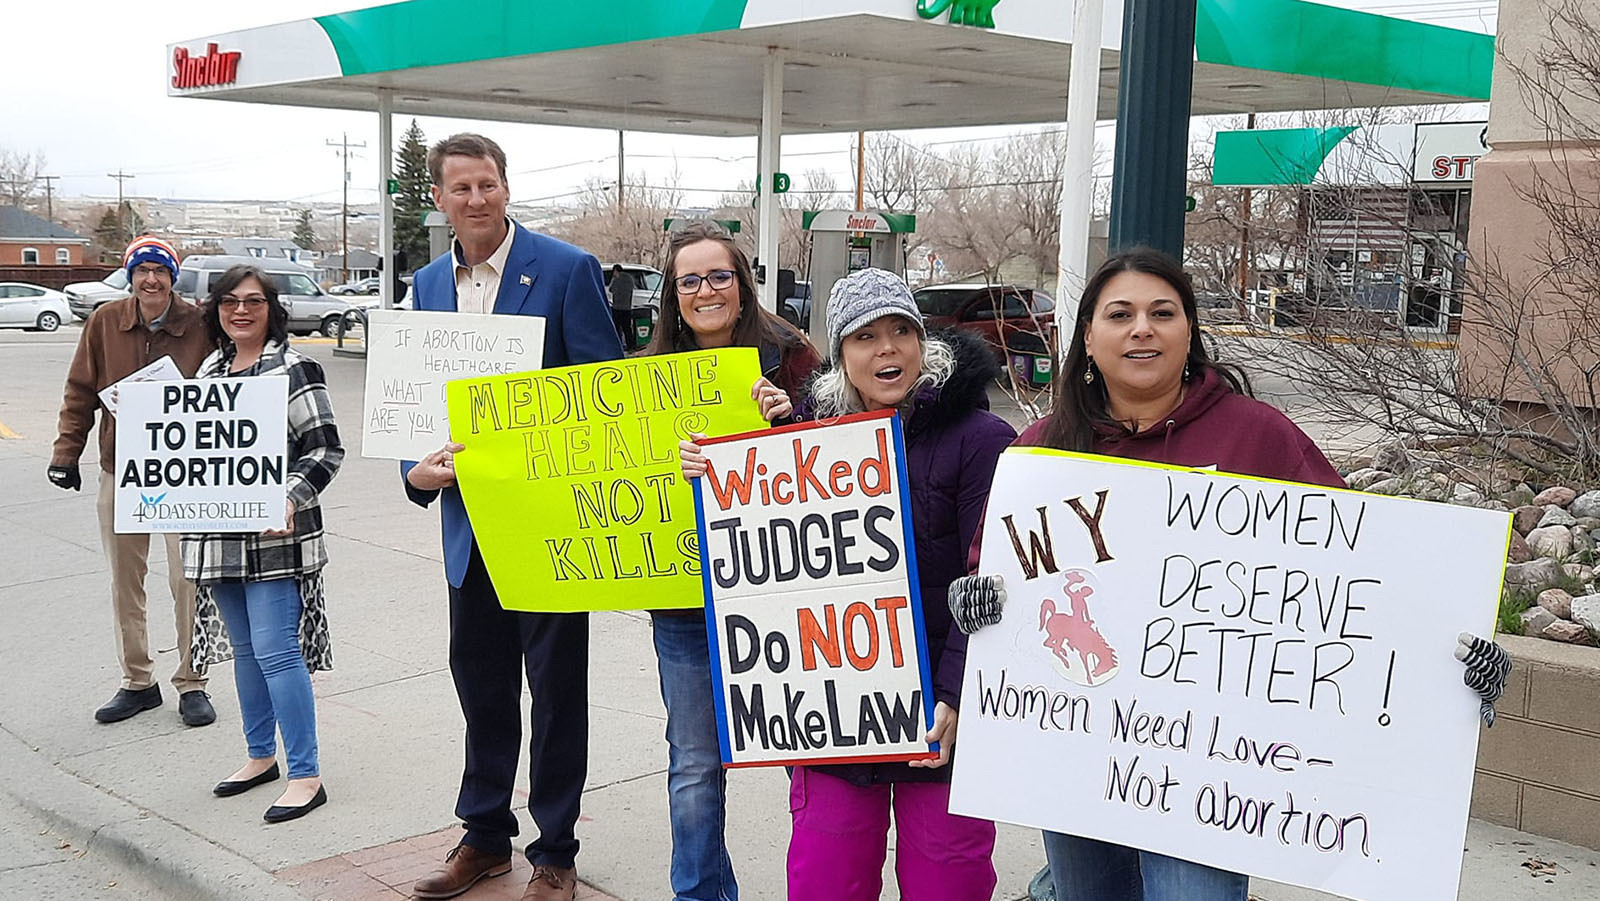 Sinclair
3
Sinclair
ST
PRAY
TO END
ABORTION
40 DAYS FOR LIFE
WWW.40DAYSFORLIFE.COM
IF ABORTION IS
HEALTHCARE
WHAT
ARE YOU
MEDICINE
HEALS
NOT
KILLS
Wicked
JUDGES
Do NOT
MakeLAW
WY
WOMEN
DESERVE
BETTER!
Women Need Love-
Not abortion.